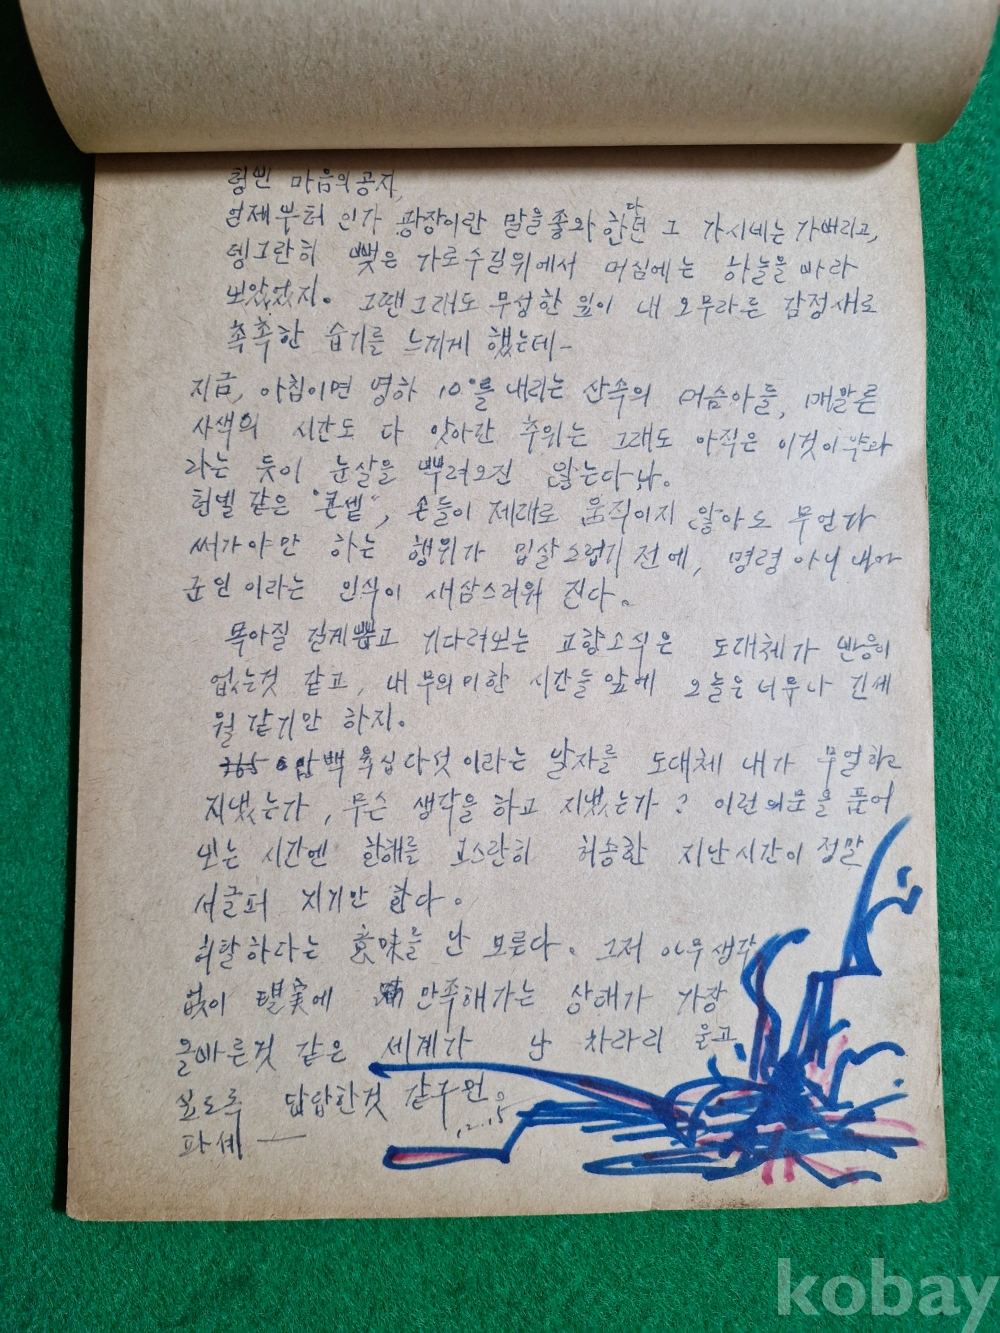 텅빈 마음의 공자,
언제부터 인가 광장이란 말을 좋와 한다던 그 가시네는 가버리고,
뎅그란히 뻗은 가로수길위에서 머심에는 하늘을 바라
보았었지. 그땐 그래도 무성한 잎이 내 오무라른 감정새로
촉촉한 습기를 느끼게 했는데-
지금, 아침이면 영하 10°를 내리는 산속의 머슴아들, 메말른
사색의 시간도 다 앗아간 추위는 그래도 아직은 이것이 약과
라는 듯이 눈살을 뿌려오진 않는다나.
텅빌 같은 "콘셑", 손들이 제대로 움직이지 않아도 무언가
써가야만 하는 행위가 밉살스럽기 전에, 명령 아닌 내가
군인 이라는 인식이 새삼스러워 진다.
목아질 길게 뽑고 기다려보는 고향소식은 도대체가 반응이
없는것 같고, 내 무의미한 시간들 앞에 오늘은 너무나 긴세
월 같기만 하지.
365 삼백 육십다섯이라는 날자를 도대체 내가 무얼하고
지냈는가, 무슨 생각을 하고 지냈는가? 이런 의문을 품어
보는 시간엔 한해를 고스란히 허송한 지난 시간이 정말
서글퍼 지기만 한다.
허탈하다는 意味를 난 모른다. 그저 아무생각
없이 現実에 만족해가는 상태가 가장
올바른것 같은 세계가 난 차라리 울고
싶도록 답답한것 같구원.
파세 — 12.15
kobay